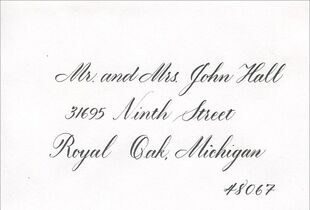 Mr. and Mrs. John Hall
31695 Ninth Street
Royal Oak, Michigan
48067